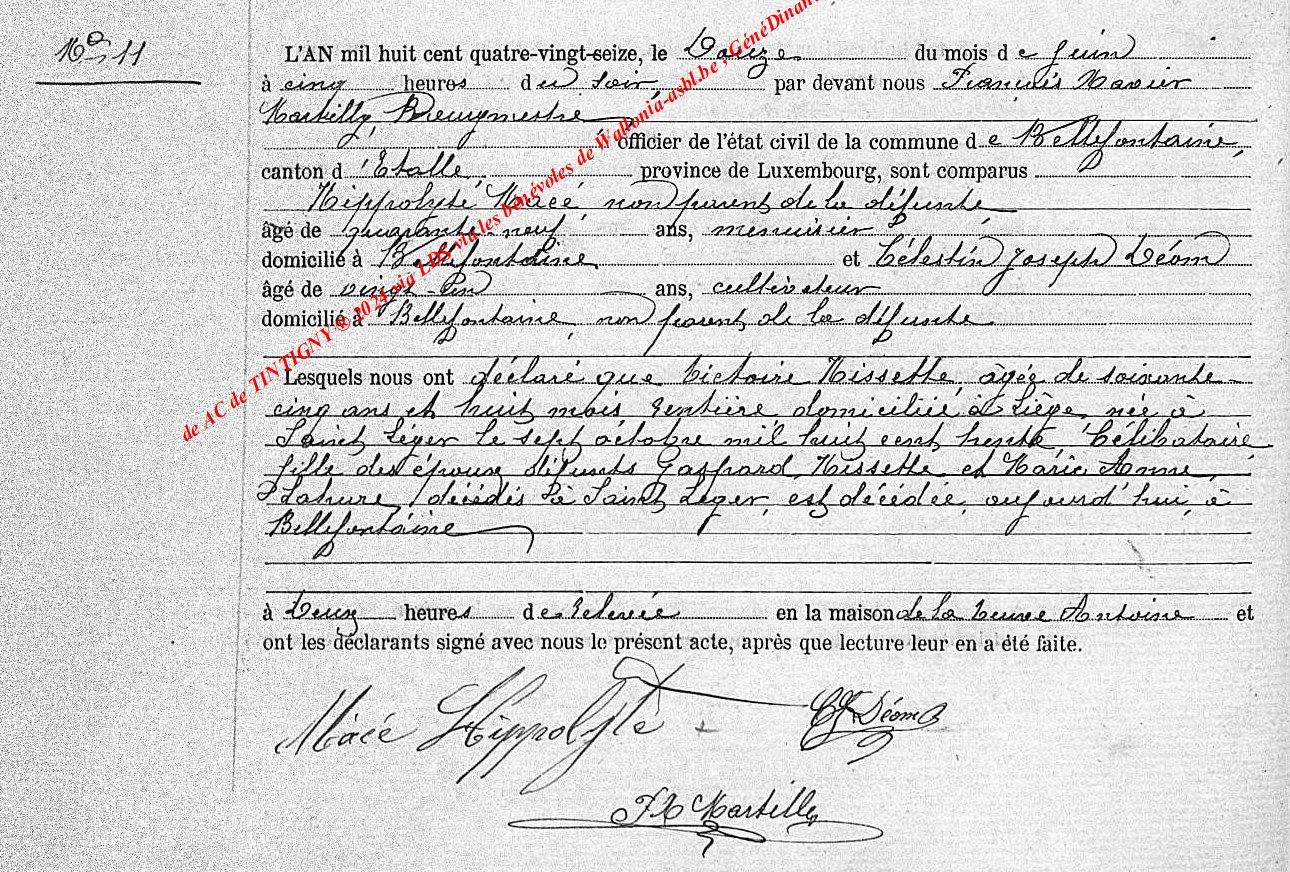 No 11
L'AN mil huit cent quatre-vingt-seize, le Douze du mois de Juin
à cinq heures du soir, par devant nous François Xavier
Martilly, Bourgmestre
officier de l'état civil de la commune de Bellefontaine,
canton d'Etalle, province de Luxembourg, sont comparus
Hippolyte Macé, non parent de la défunte
âgé de quarante-neuf ans, menuisier
domicilié à Bellefontaine et Célestin Joseph Déom
âgé de vingt-un ans, cultivateur
domicilié à Bellefontaine, non parent de la défunte
Lesquels nous ont déclaré que Victoire Hissette, âgée de soixante
cinq ans et huit mois, rentière domiciliée à Liège, née à
Saint Léger le sept octobre mil huit cent trente, Célibataire
fille des époux défunts Gaspard Hissette et Marie Anne
Lahure, décédés à Saint Léger, est décédée, aujourd'hui, à
Bellefontaine
à deux heures de relevée en la maison de la veuve Antoine et
ont les déclarants signé avec nous le présent acte, après que lecture leur en a été faite.
Macé Hippolyte CJ Déom
FX Martilly
de AC de TINTIGNY © 2024 via LDS via les bénévoles de Wallonia-asbl.be , GénéDinant